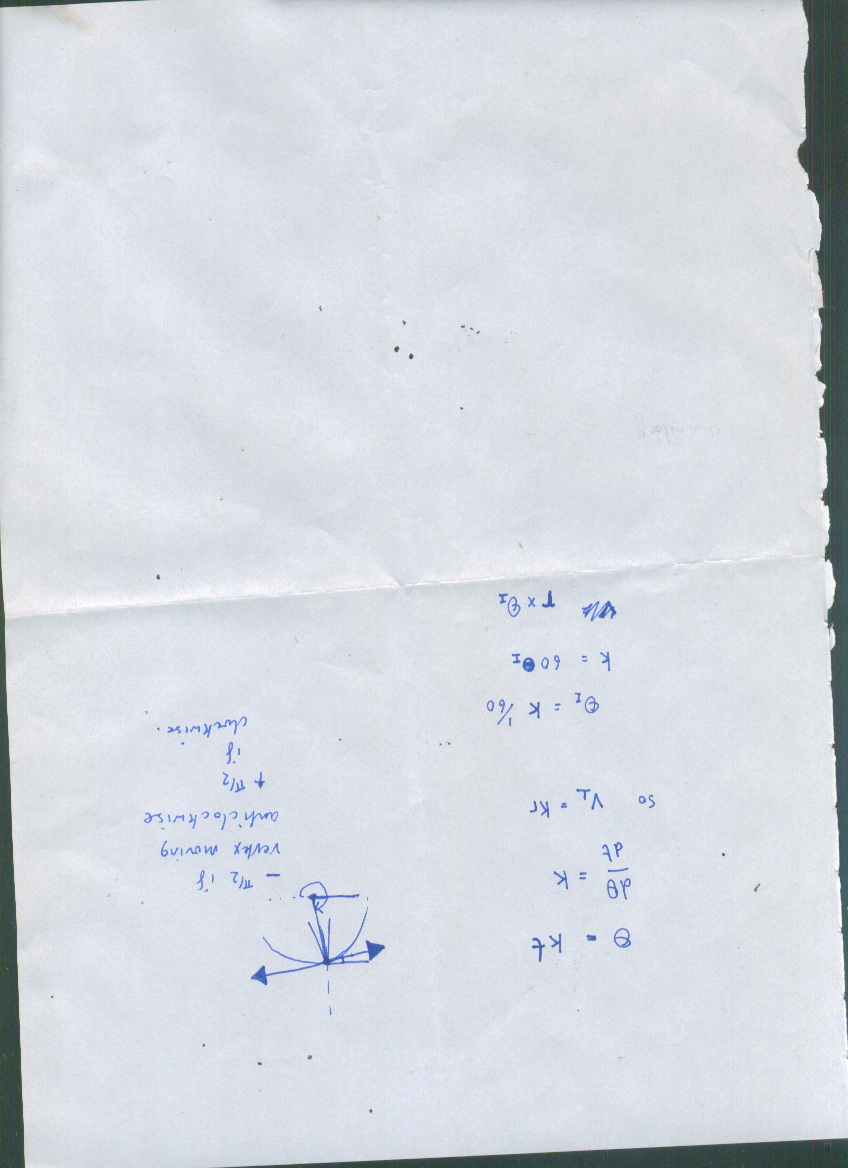 θ = kt
dθ/dt = k
so V⊥ = kr
θI = k 1/60
k = 60θI
r × θI
- π/2 if
vertex moving
anticlockwise
+ π/2
if
clockwise.